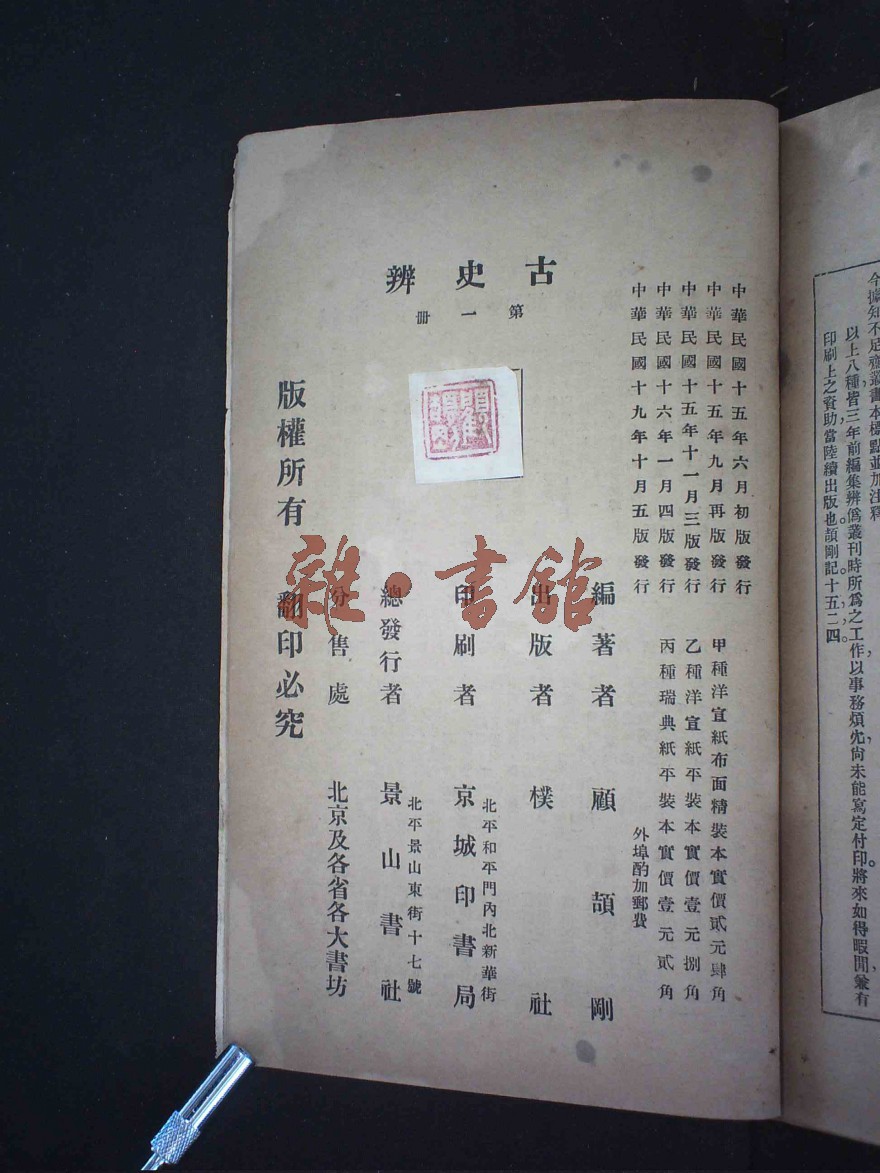 今據知不足齋叢書本標點並加注釋
以上八種皆三年前編集辨僞叢刊時所爲之工作，以事務煩冗，尚未能寫定付印。將來如得暇閒，兼有
印刷上之資助，當陸續出版也。頡剛記，十五，二，四。
中華民國十五年六月初版發行
中華民國十五年九月再版發行
中華民國十五年十一月三版發行
中華民國十六年一月四版發行
中華民國十九年十月五版發行
甲種洋宣紙布面精裝本實價貳元肆角
乙種洋宣紙平裝本實價壹元捌角
丙種瑞典紙平裝本實價壹元貳角
外埠酌加郵費
古史辨
第一册
編著者 顧頡剛
出版者 樸社
印刷者 京城印書局
北平和平門內北新華街
總發行者 景山書社
北平景山東街十七號
分售處 北京及各省各大書坊
版權所有 翻印必究
雜·書館